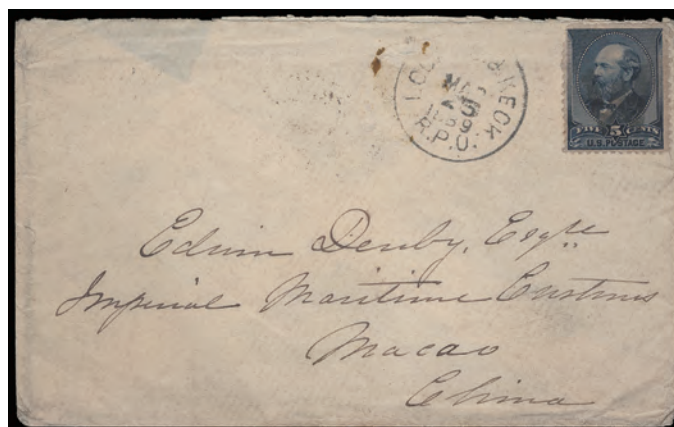 & KECK
MAR
5
1889
R.P.O.
FIVE 5 CENTS
U.S. POSTAGE
Edwin Denby, Esqre
Imperial Maritime Customs
Macao
China